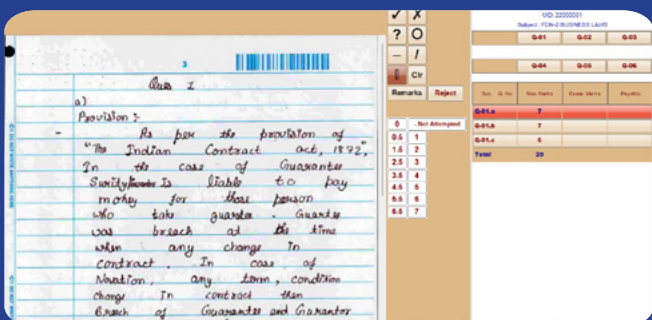 3
Ques 1
a)
Provision :-
- As per the provision of
"The Indian Contract act, 1872",
In the case of Guarantee
Surity is liable to pay
money for those person
who take guarantee. Guarantee
was breach at the time
when any change in
contract. In case of
Novation, any term, condition
change In contract then
Breach of Guarantee and Garantor
✓ X
? O
— /
Clr
Remarks Reject
0 - Not Attempted
0.5 1
1.5 2
2.5 3
3.5 4
4.5 5
5.5 6
6.5 7
UID: 22000001
Subject : FCN-2 BUSINESS LAWS
Q-01 Q-02 Q-03
Q-04 Q-05 Q-06
Sub. Q. No Max Marks Exam Marks
Q-01.a 7
Q-01.b 7
Q-01.c 6
Total 20